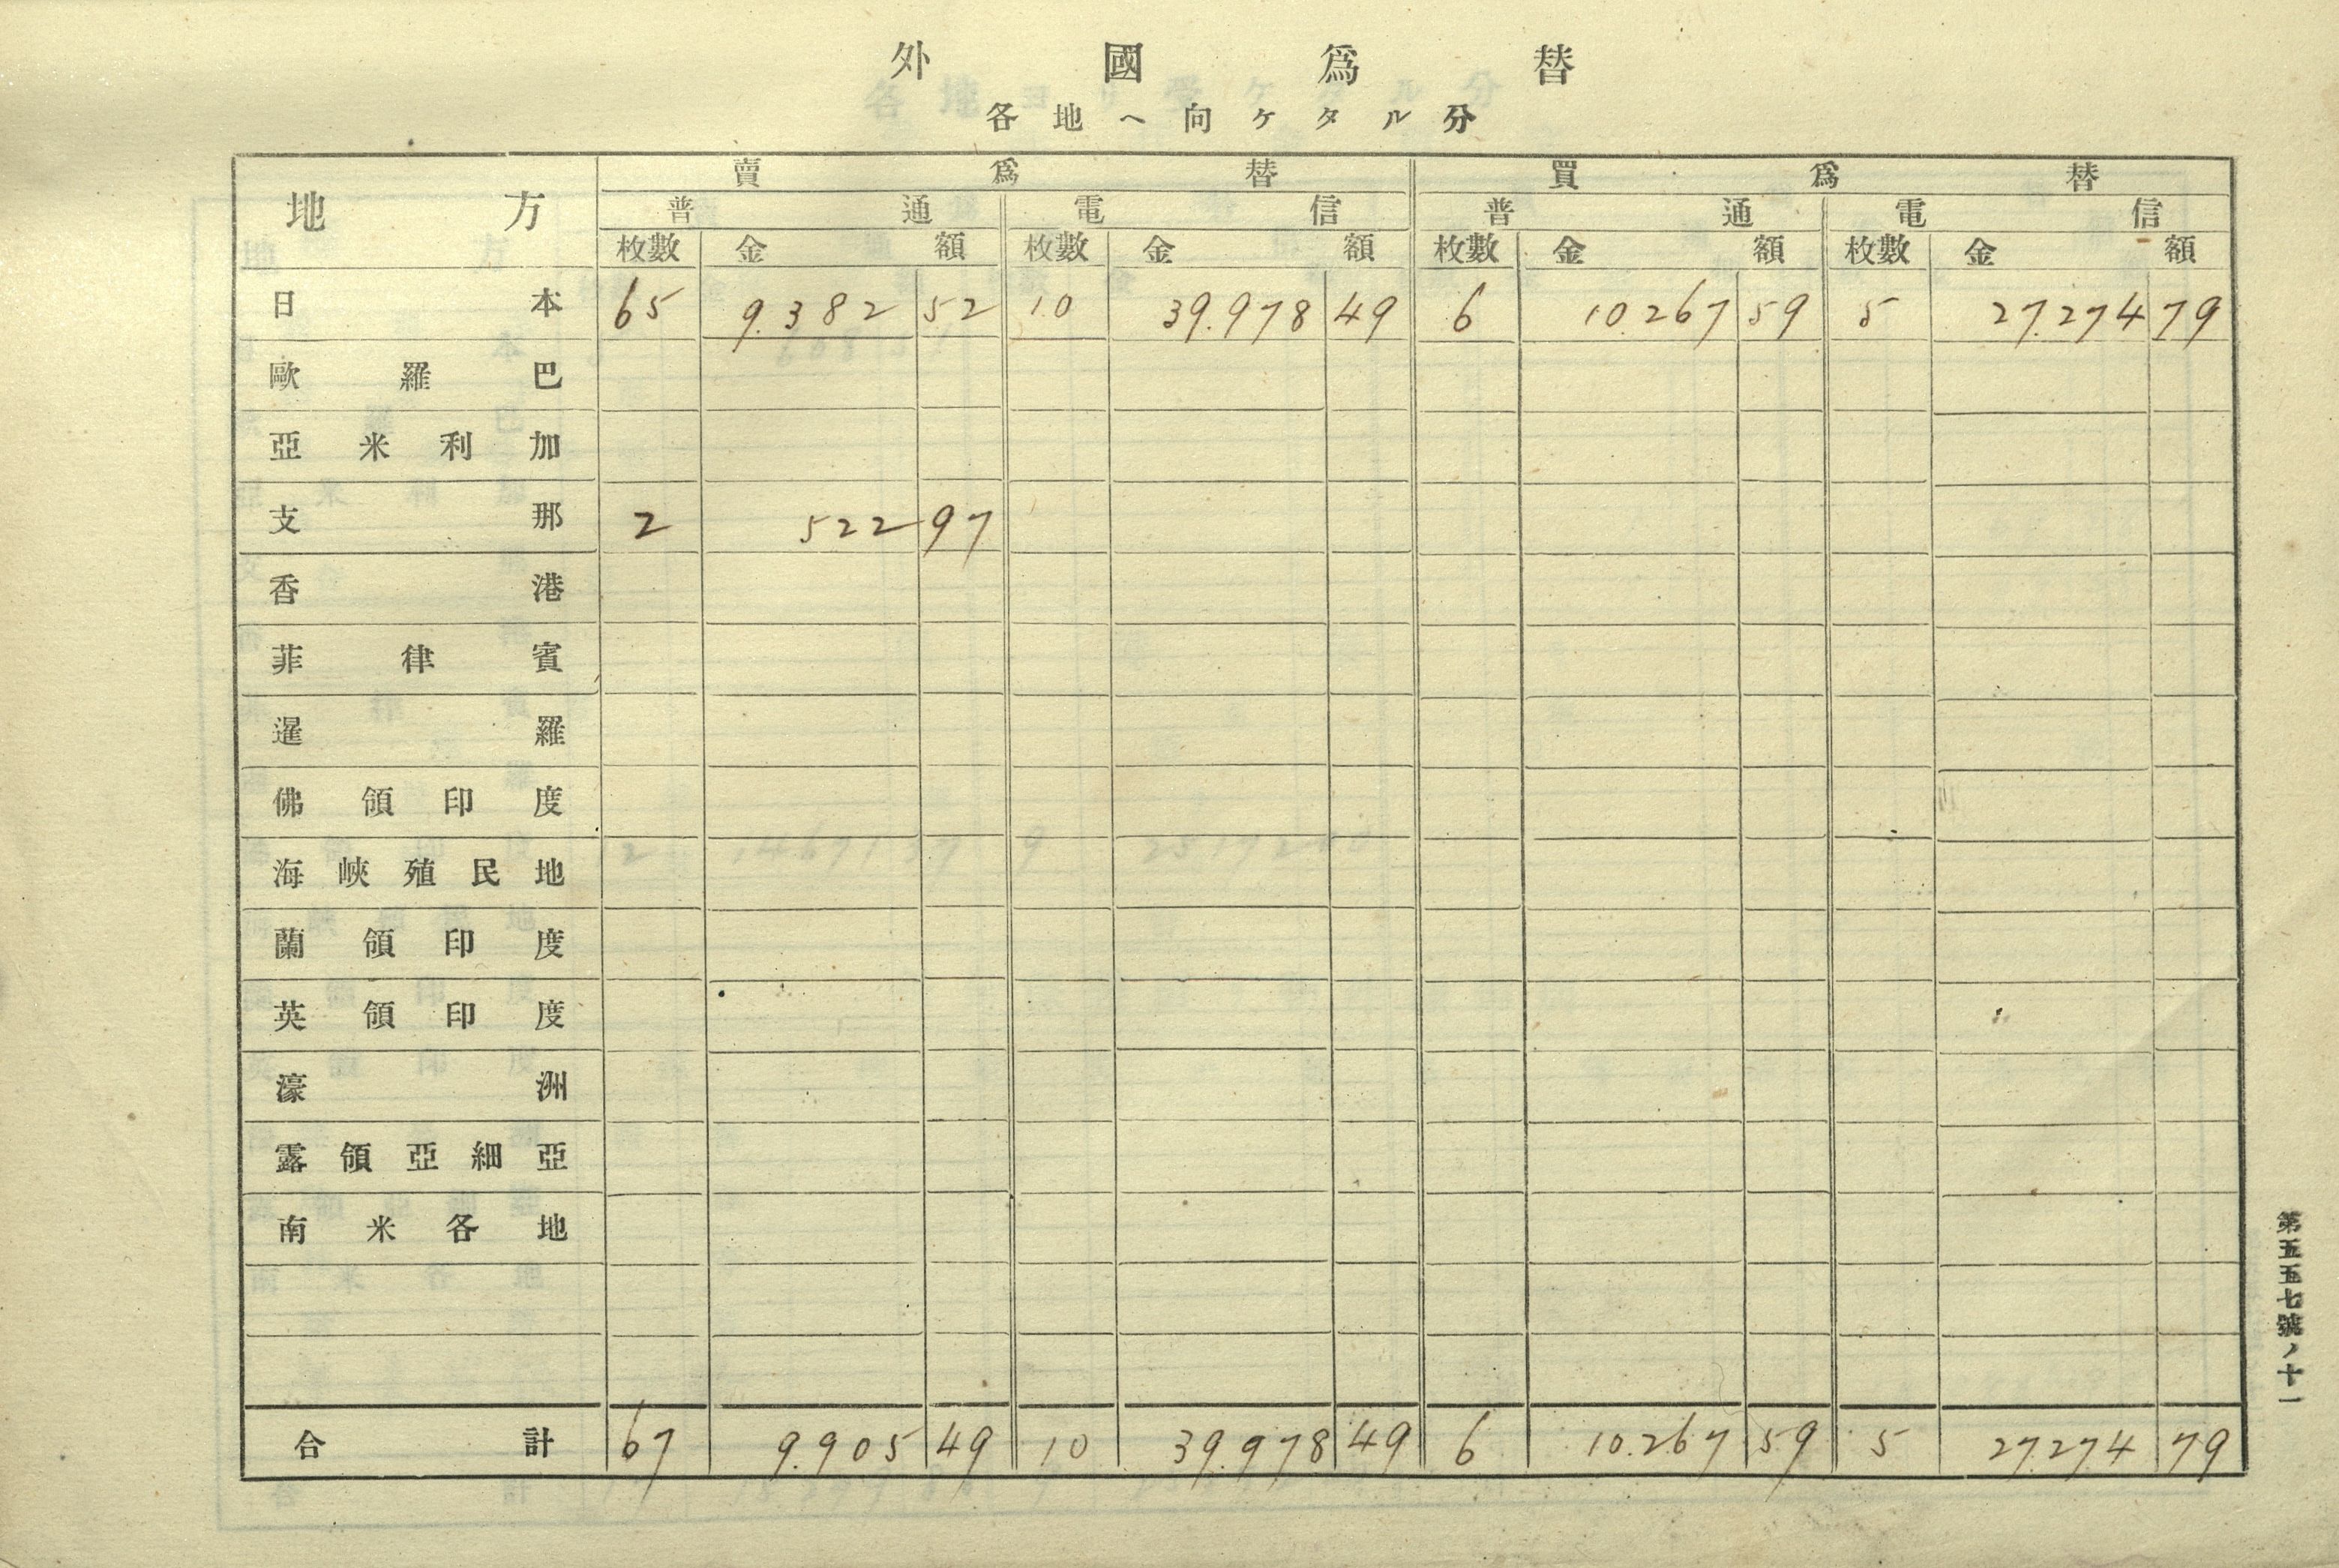 外國爲替
各地ヘ向ケタル分
地方 賣爲替 買爲替
普通 電信 普通 電信
枚數 金額 枚數 金額 枚數 金額 枚數 金額
日本 65 9.382 52 10 39.978 49 6 10.267 59 5 27.274 79
歐羅巴
亞米利加
支那 2 522 97
香港
菲律賓
暹羅
佛領印度
海峽殖民地
蘭領印度
英領印度
濠洲
露領亞細亞
南米各地
合計 67 9.905 49 10 39.978 49 6 10.267 59 5 27.274 79
第五五七號ノ十一